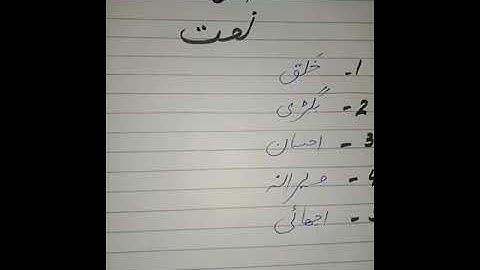 نعت
1- خَلق
2- بگڑی
3- احسان
4- ویرانہ
اچھائی